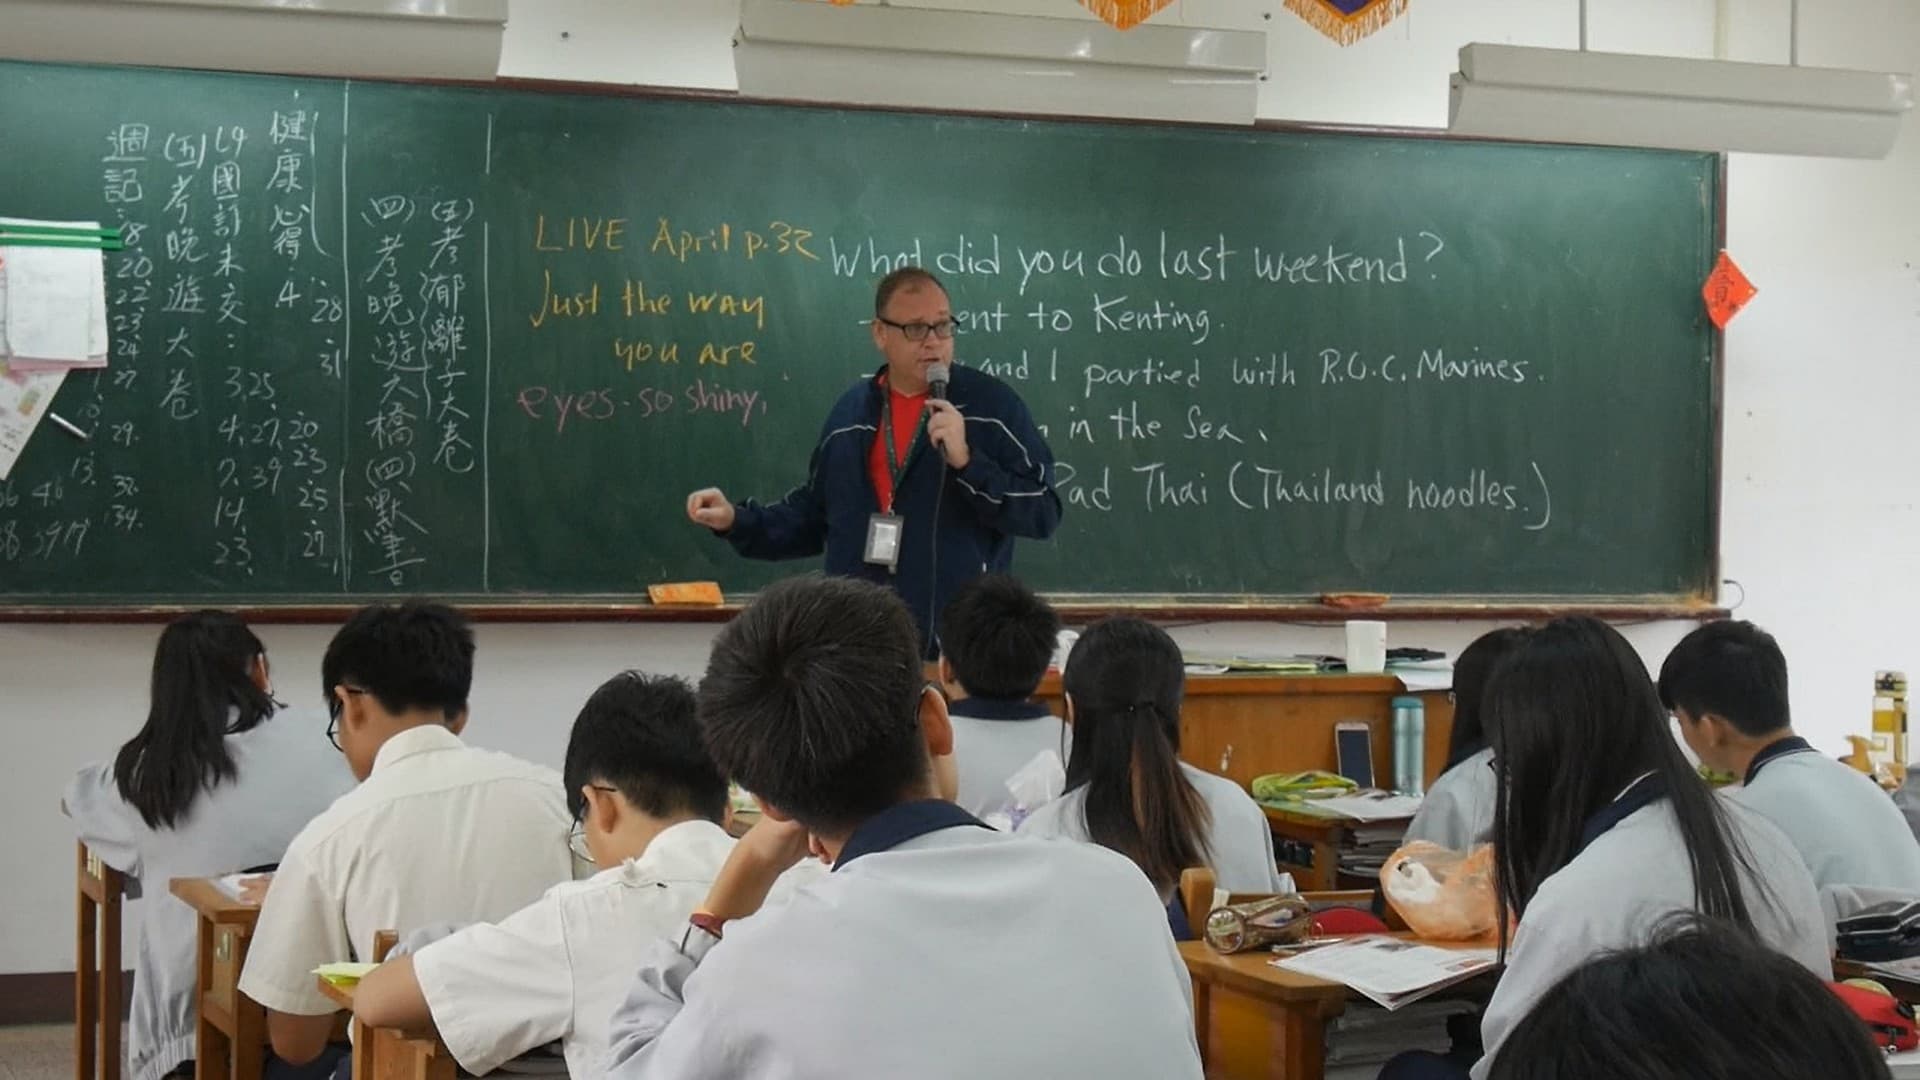 週記:
18.
20.
22.
23.
24.
27
29.
13.
33.
34.
(五)考晚遊大卷
(4)國訂未交:
3.25
4.27.20
7.39
23
14.
25
23.
27.
健康心得.4
28
31
(四)考晚遊大橋(四)默書
(五)考郁離子大卷
LIVE April p.32
Just the way
you are
eyes. so shiny,
What did you do last weekend?
ent to Kenting.
and I partied with R.O.C. Marines.
in the Sea.
Pad Thai (Thailand noodles.)